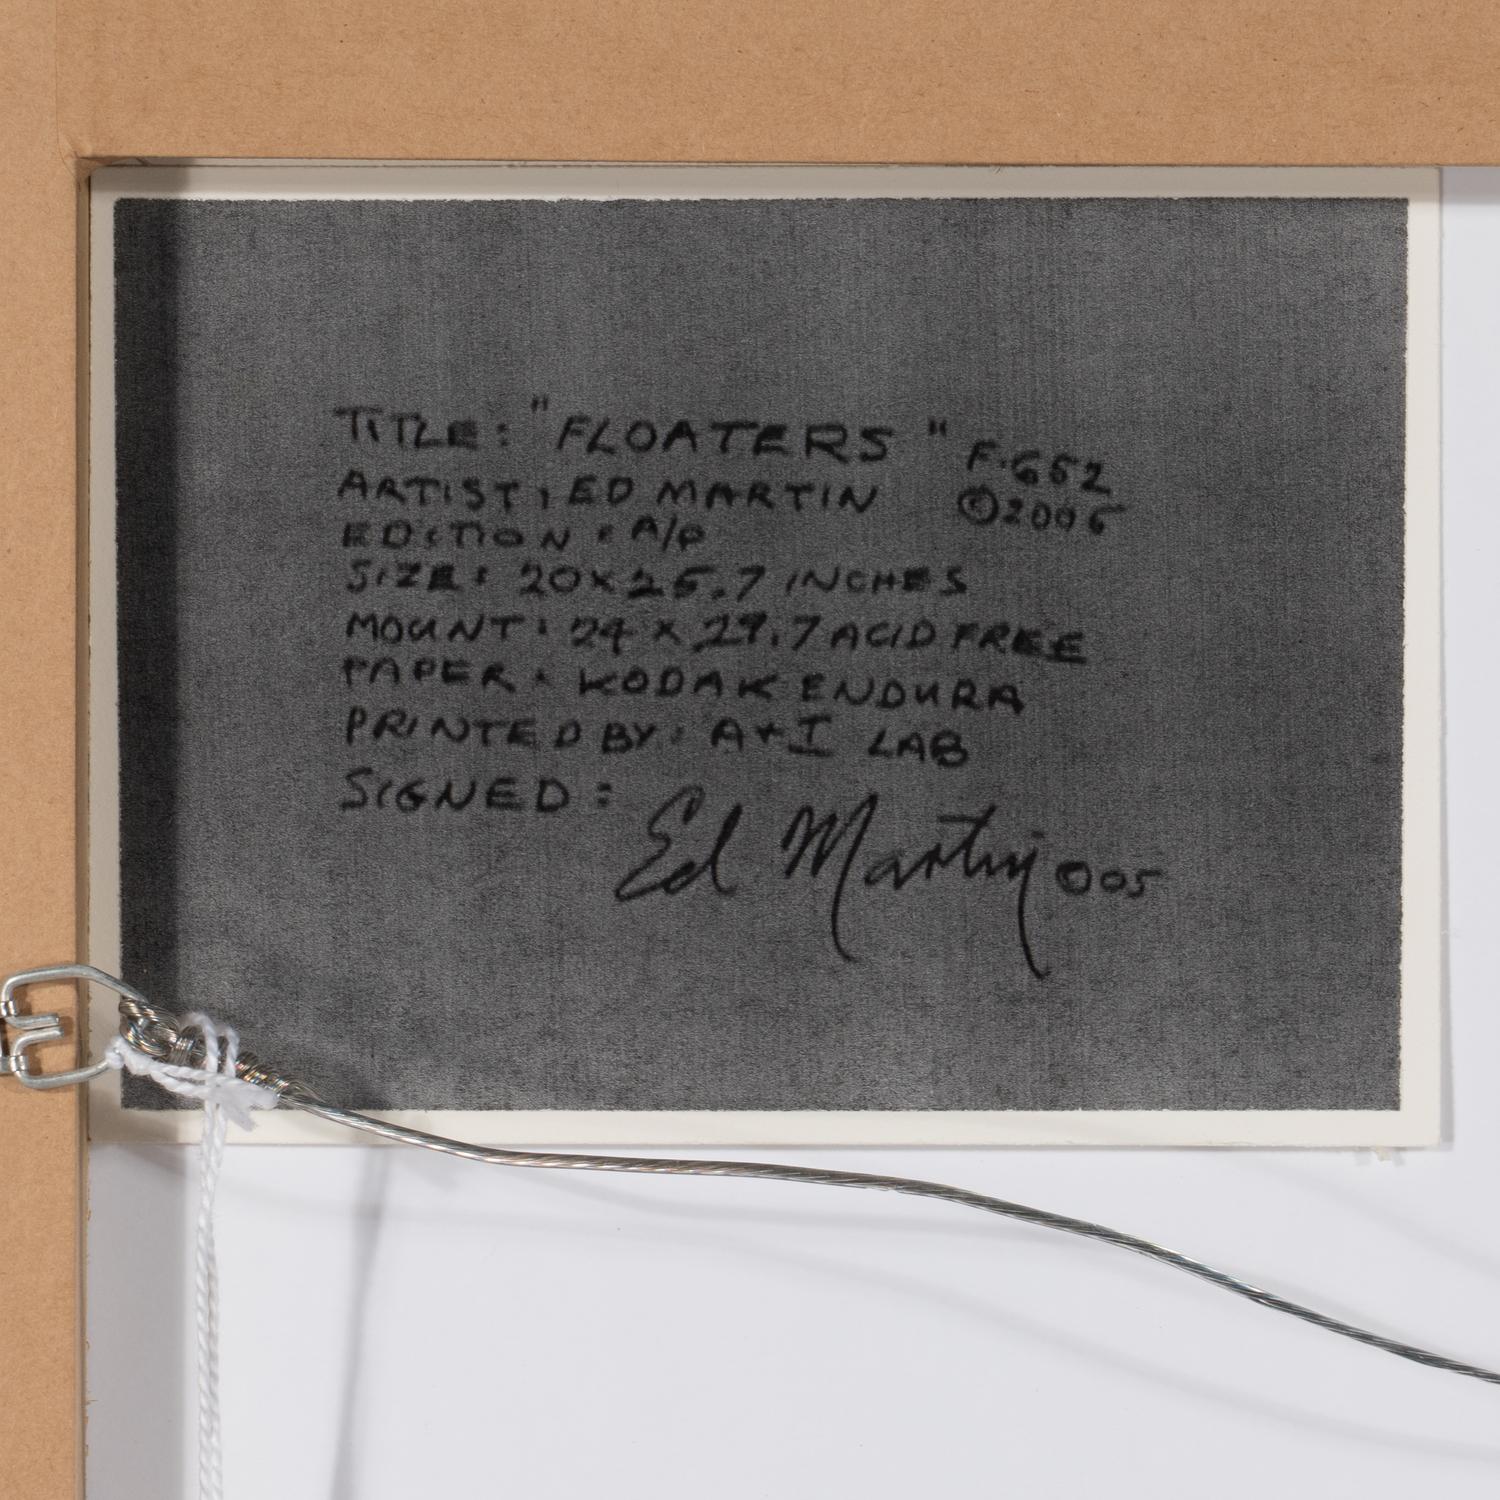 TITLE: "FLOATERS" F.662
ARTIST: ED MARTIN ©2005
EDITION: A/P
SIZE: 20 X 25.7 INCHES
MOUNT: 24 X 29.7 ACID FREE
PAPER: KODAK ENDURA
PRINTED BY: A+I LAB
SIGNED: Ed Martin 005